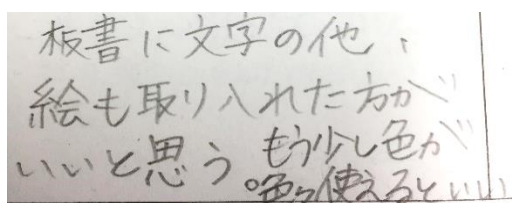 板書に文字の他、
絵も取り入れた方が
いいと思う。
もう少し色が
使えるといい